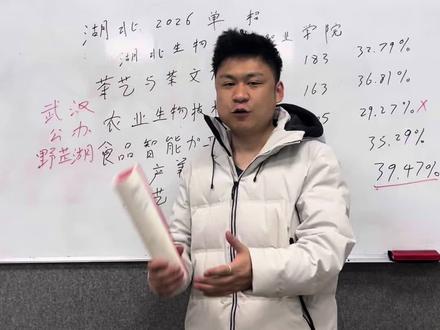 湖北 2026 单招
湖北生物 业学院
茶艺与茶文 183 32.79%
农业生物技 163 36.81%
武汉
公办
野芷湖
5 29.27% x
食品智能加工 35.29%
产 39.47%
艺